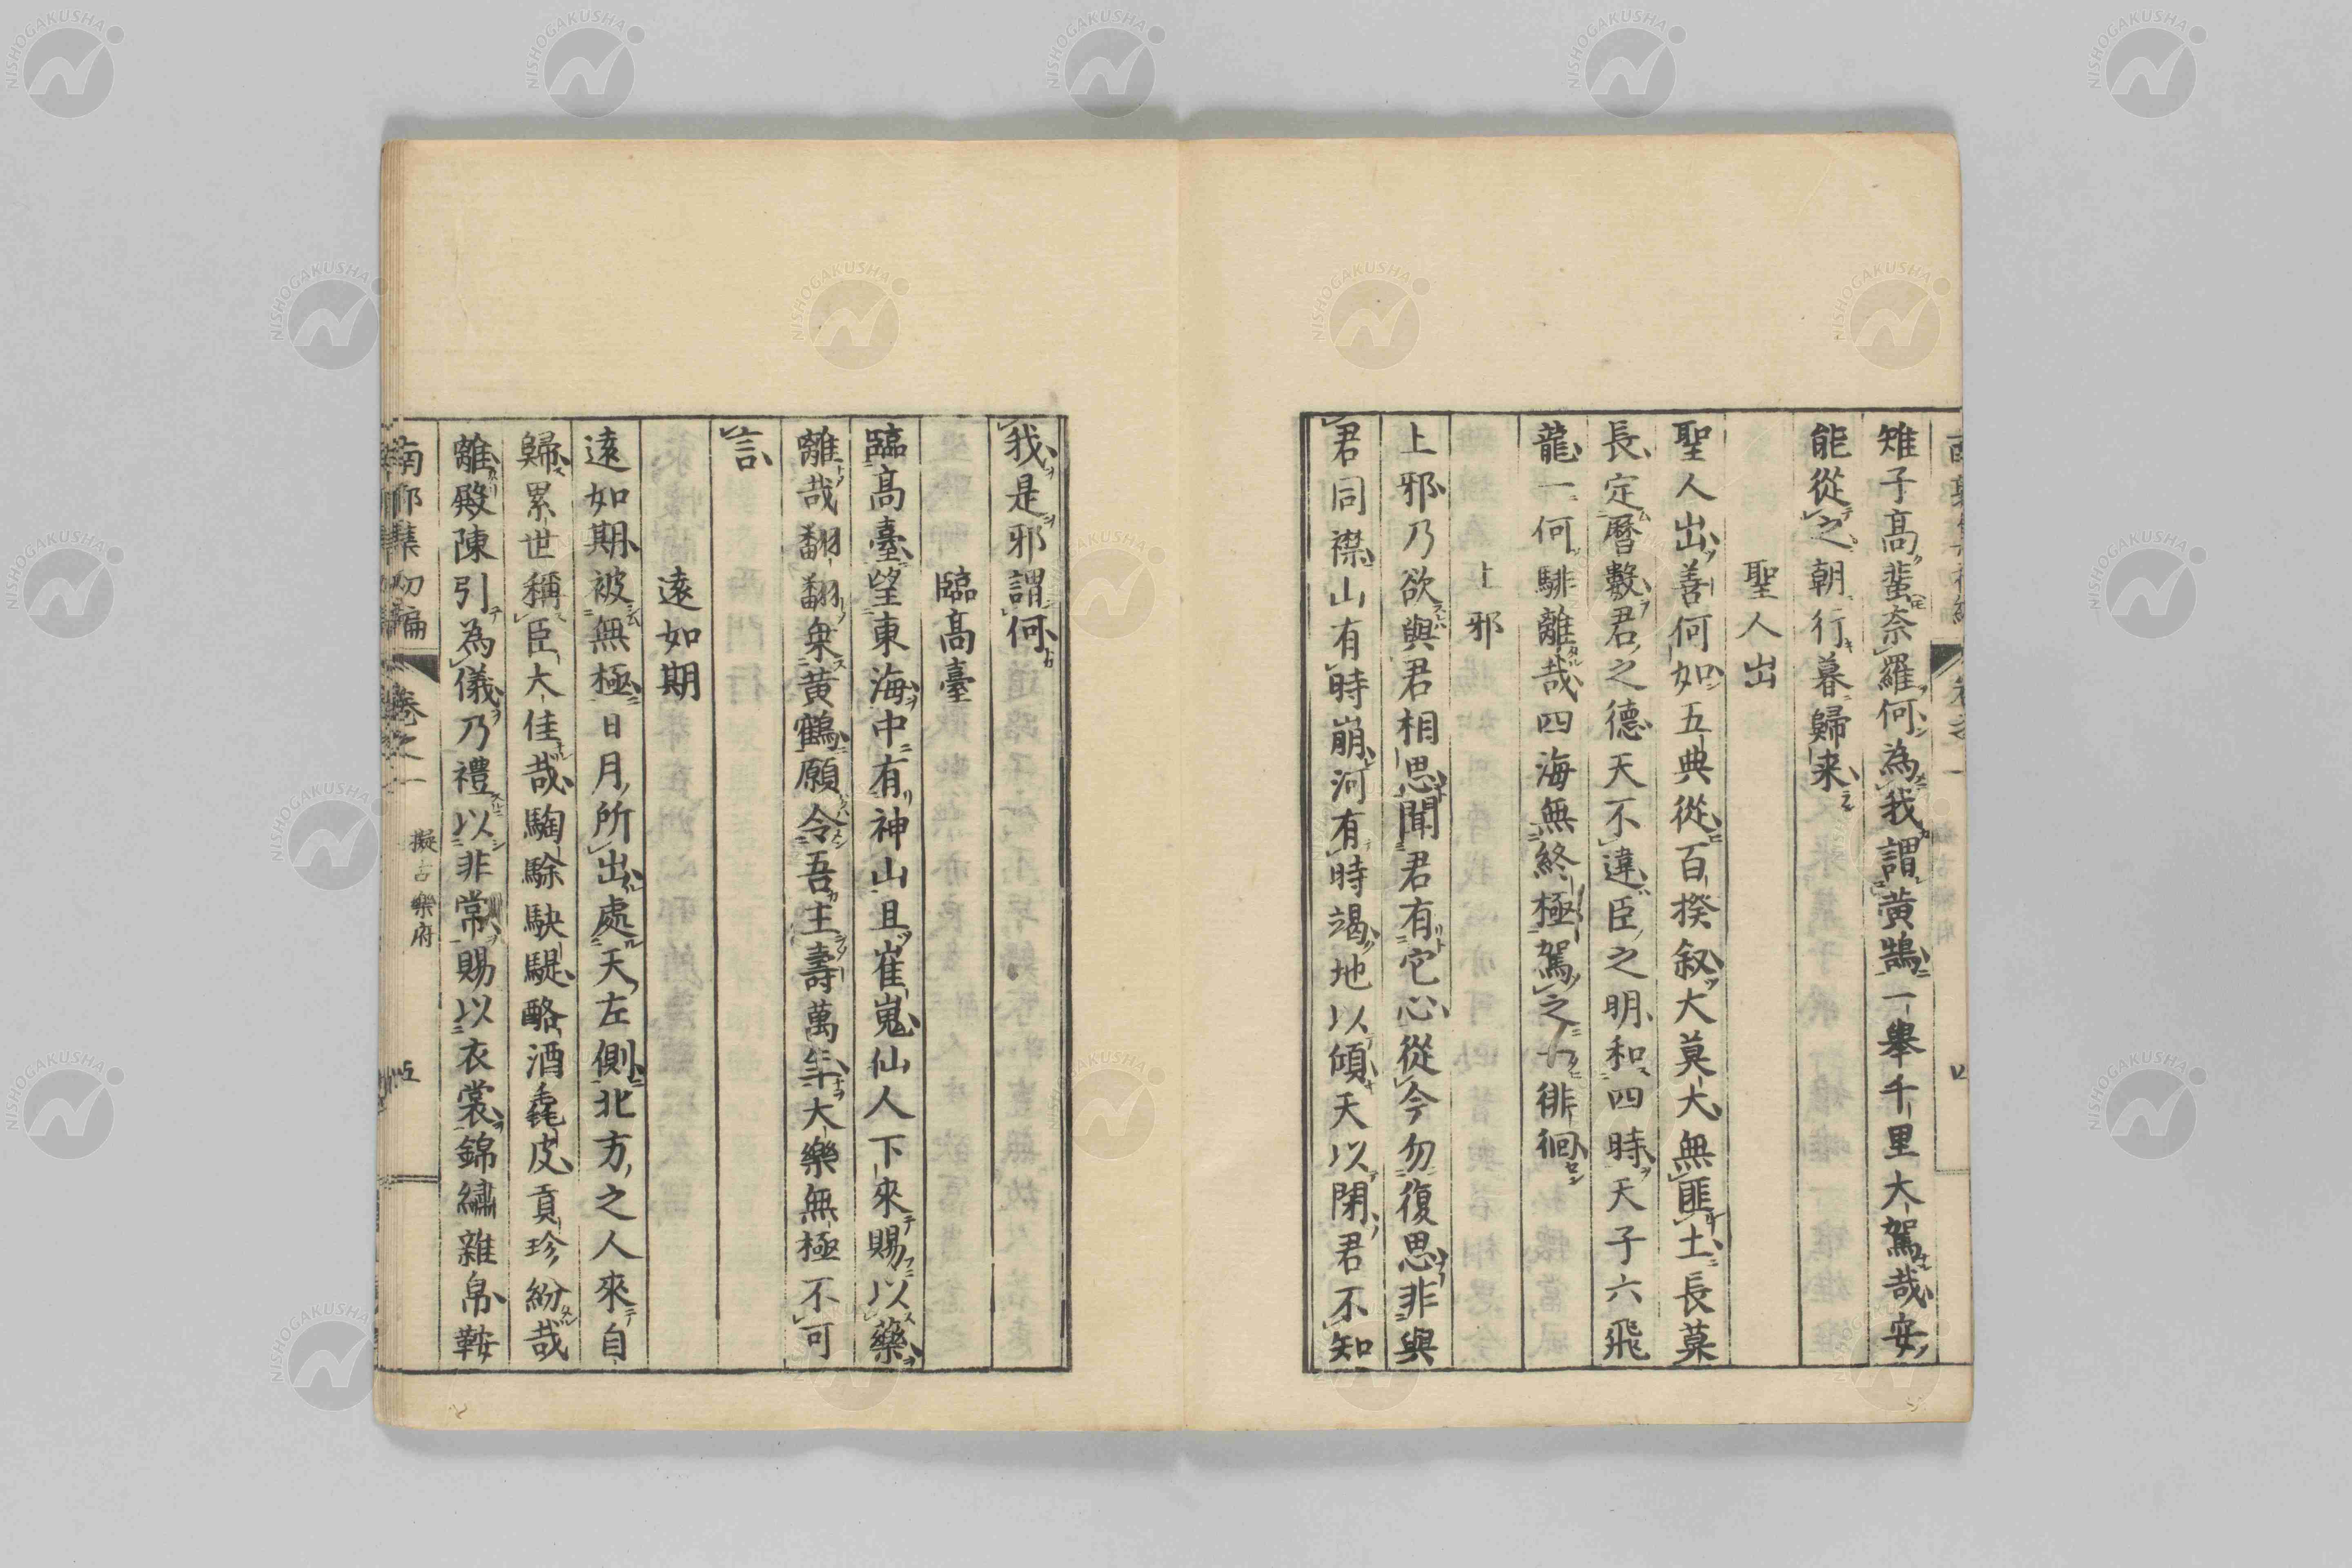 雉子高蜚奈羅何為我謂黃鵠一舉千里大駕哉安
能從之朝行暮歸来
聖人出
聖人出善何如五典從百揆叙大莫大無匪土長莫
長定曆數君之德天不違臣之明和四時天子六飛
龍一何騑離哉四海無終極駕之徘徊
上邪
上邪乃欲與君相思聞君有它心從今勿復思非與
君同襟山有時崩河有時竭地以傾天以閉君不知
我是邪謂何
臨高臺
臨高臺望東海中有神山且崔嵬仙人下來賜以藥
離哉翻翻射黃鶴願令吾主壽萬年大樂無極不可
言
遠如期
遠如期被無極日月所出處天左側北方之人來自
歸累世稱臣大佳哉騊駼駃騠酪酒毳皮貢珍紛哉
離殿陳引為儀乃禮以非常賜以衣裳錦繡雜帛鞍
南郭集初編 卷之一 擬古樂府 五